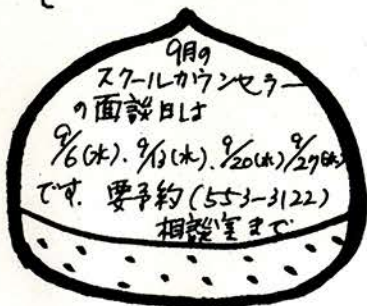 と
9月の
スクールカウンセラー
の面談日は
9/6(水). 9/13(水). 9/20(水) 9/27(水)
です. 要予約(553-3122)
相談室まで